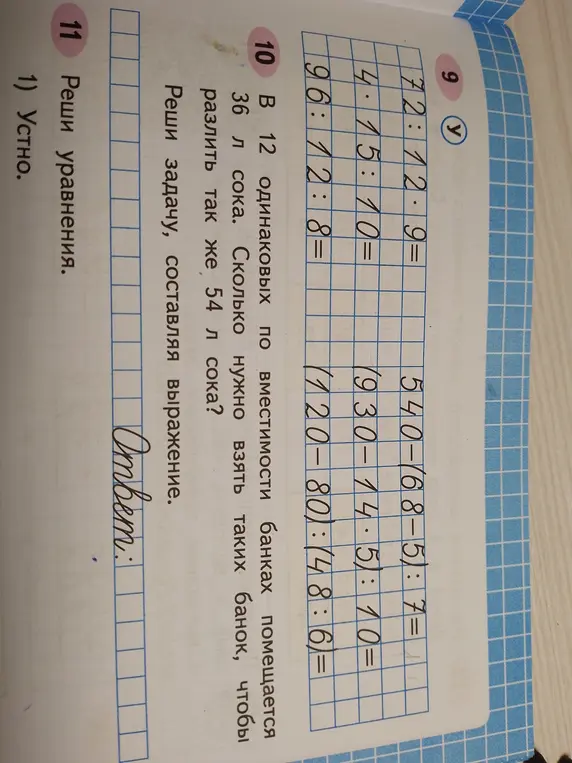 9 У
72:12·9= 540-(68-5):7=
4·15:10= (930-14·5):10=
96:12:8= (120-80):(48:6)=
10 В 12 одинаковых по вместимости банках помещается
36 л сока. Сколько нужно взять таких банок, чтобы
разлить так же 54 л сока?
Реши задачу, составляя выражение.
Ответ:
11 Реши уравнения.
1) Устно.